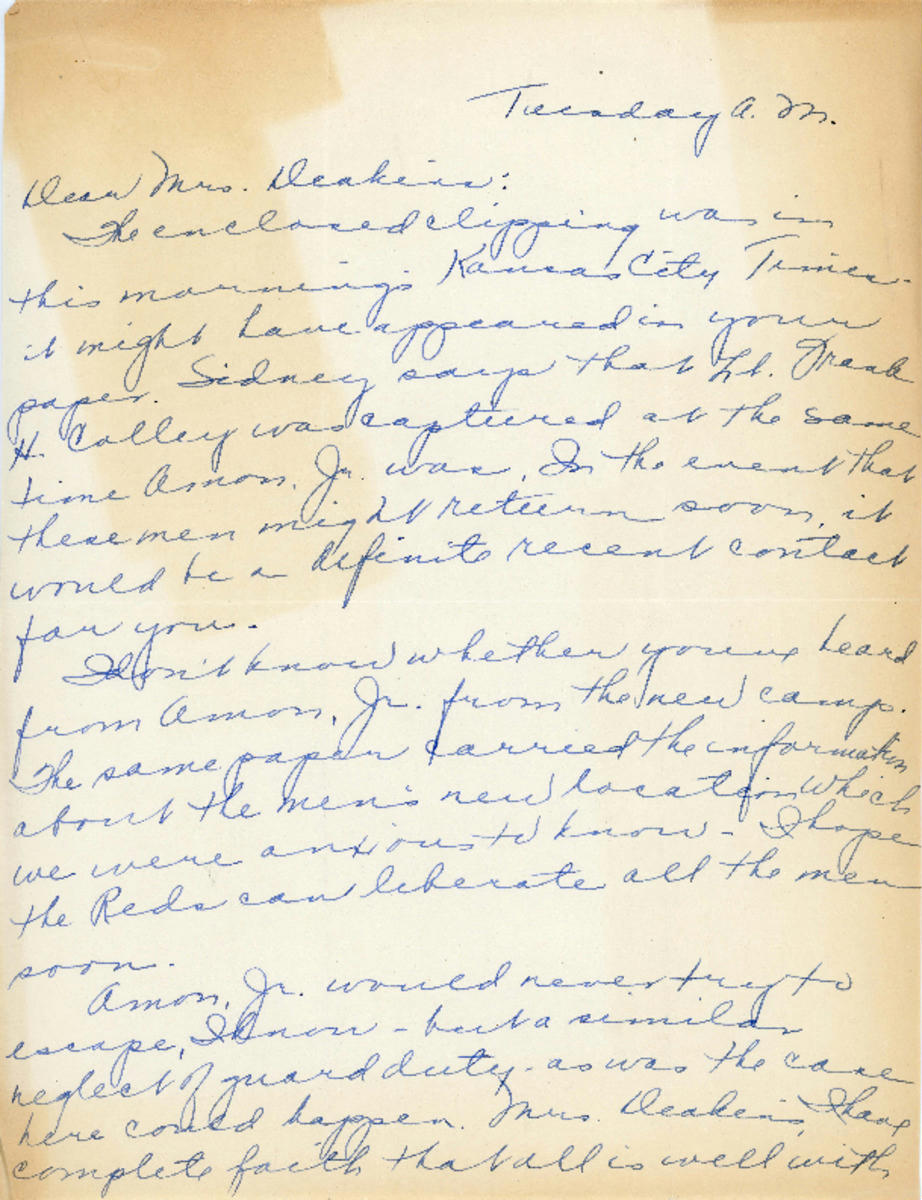 Tuesday A.M.
Dear Mrs. Deakins:
The enclosed clipping was in
this morning's Kansas City Times -
it might have appeared in your
paper. Sidney says that Lt. Frank
H. Colley was captured at the same
time Amon, Jr. was. In the event that
these men might return soon, it
would be a definite recent contact
for you.
I don't know whether you've heard
from Amon, Jr. from the new camp.
The same paper carried the information
about the men's new location which
we were anxious to know - I hope
the Reds can liberate all the men
soon.
Amon, Jr. would never try to
escape, I know - but a similar
neglect of guard duty - as was the case
here could happen. Mrs. Deakins, I have
complete faith that all is well with